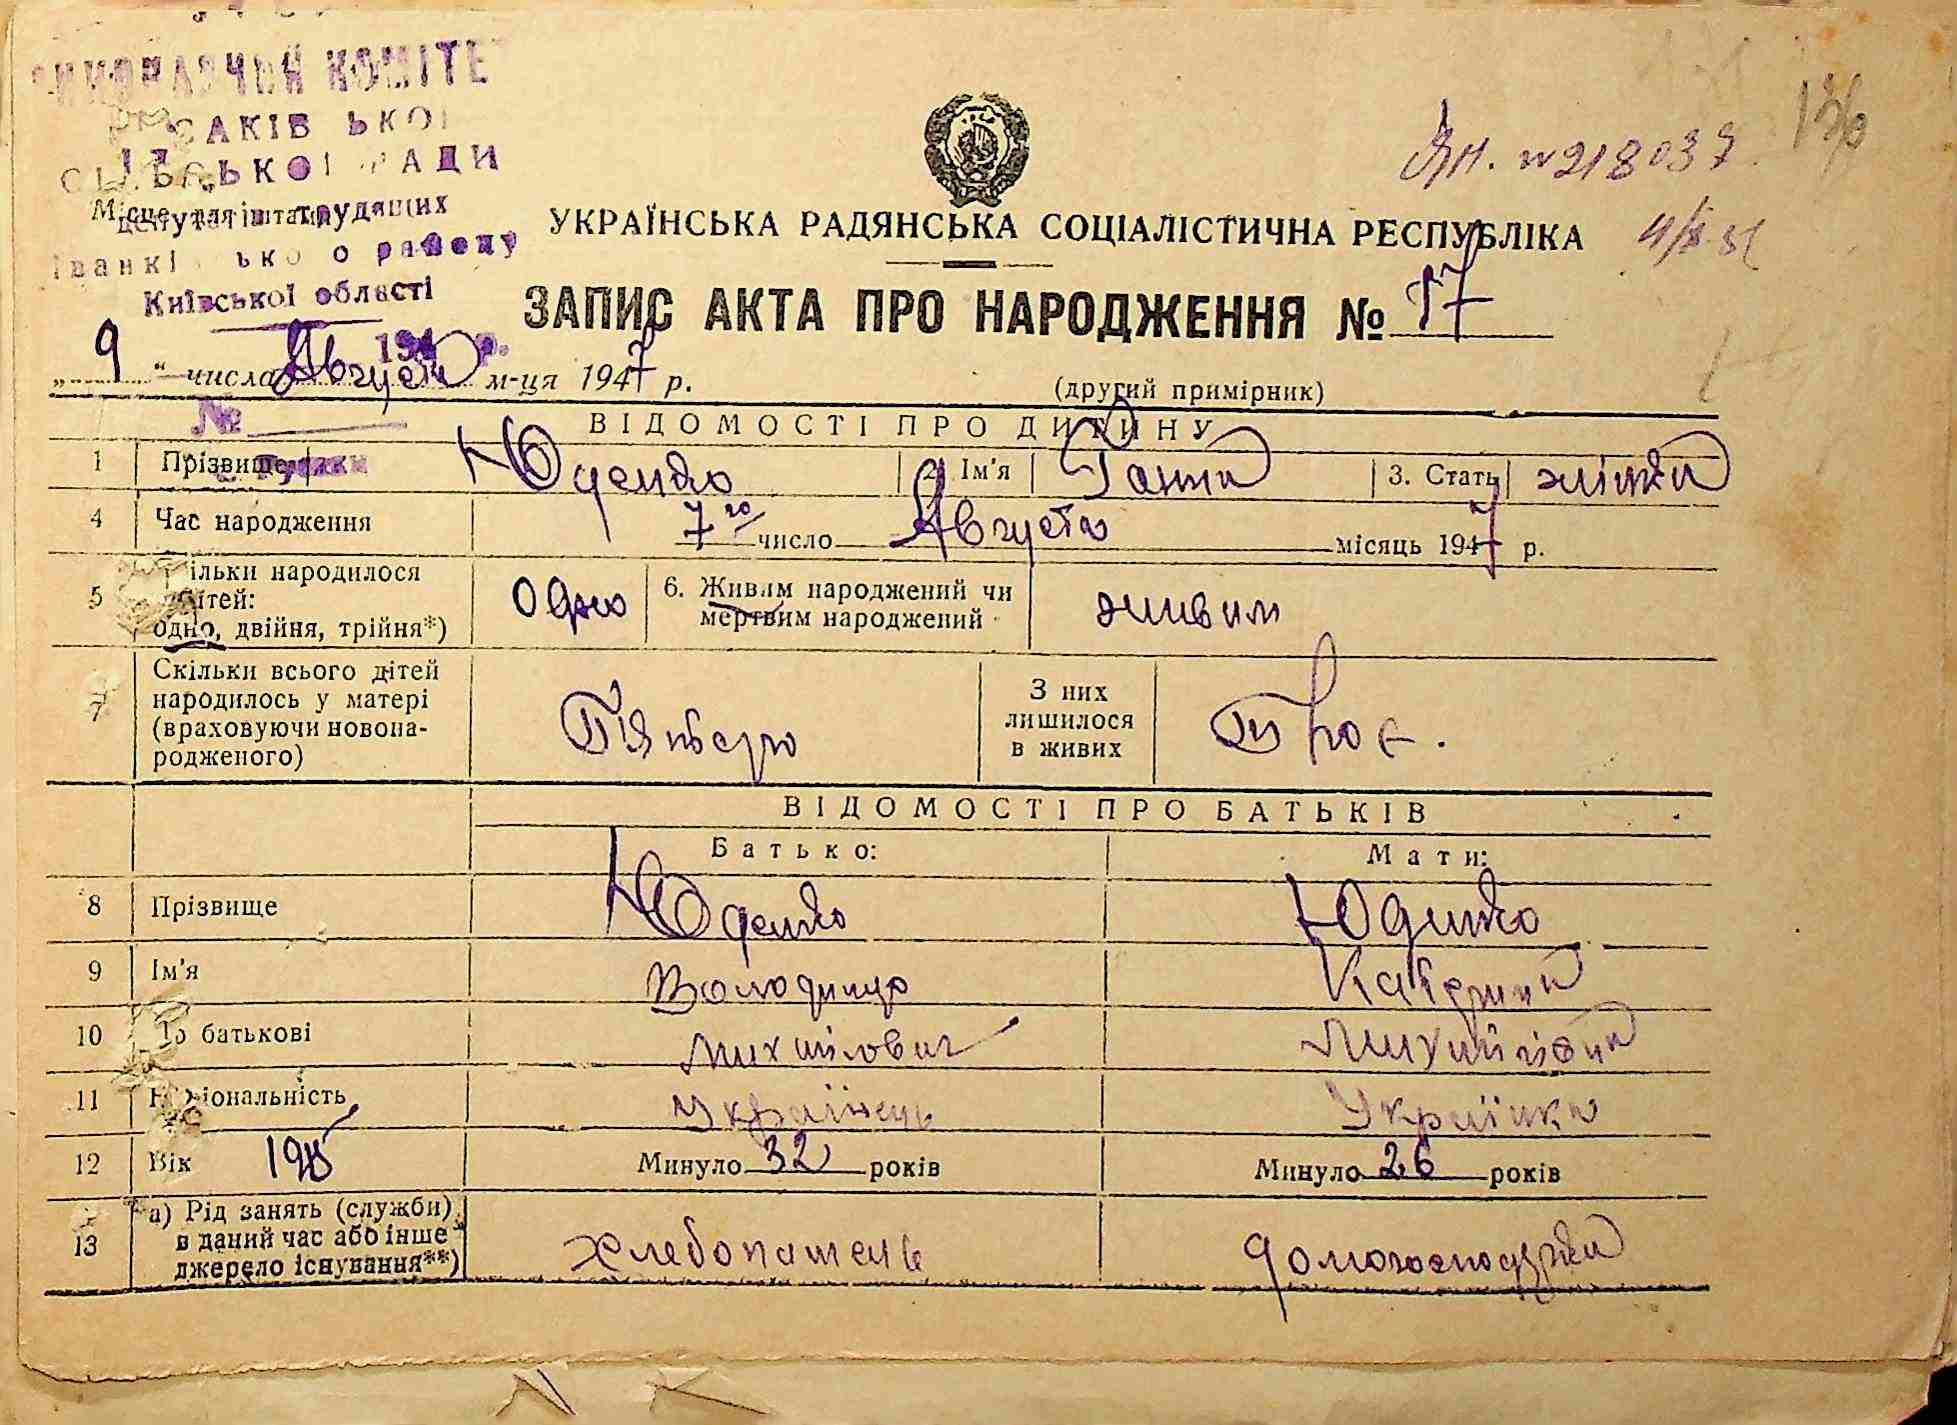 ВИКОНАВЧИЙ КОМІТЕТ
САКІВСЬКОЇ
СІЛЬСЬКОЇ РАДИ
депутатів трудящих
Іванківського району
Київської області
194 р.
№
ЯН. №218037
136
УКРАЇНСЬКА РАДЯНСЬКА СОЦІАЛІСТИЧНА РЕСПУБЛІКА
ЗАПИС АКТА ПРО НАРОДЖЕННЯ № 17
„ 9 “ числа Августа м-ця 1947 р.
(другий примірник)
ВІДОМОСТІ ПРО ДИТИНУ
1 Прізвище Юденко 2. Ім'я Ганна 3. Стать жіноча
4 Час народження 7го число Августа місяць 1947 р.
5 Скільки народилося дітей: одно, двійня, трійня*) одно 6. Живим народжений чи мертвим народжений живим
7 Скільки всього дітей народилось у матері (враховуючи новонародженого) Пятеро З них лишилося в живих Троє.
ВІДОМОСТІ ПРО БАТЬКІВ
Батько: Мати:
8 Прізвище Юденко Юденко
9 Ім'я Володимир Катерина
10 По батькові Михайлович
11 Національність Українець Українка
12 Вік 1915 Минуло 32 років Минуло 26 років
13 а) Рід занять (служби) в даний час або інше джерело існування**) хлебопашень домогосподарка